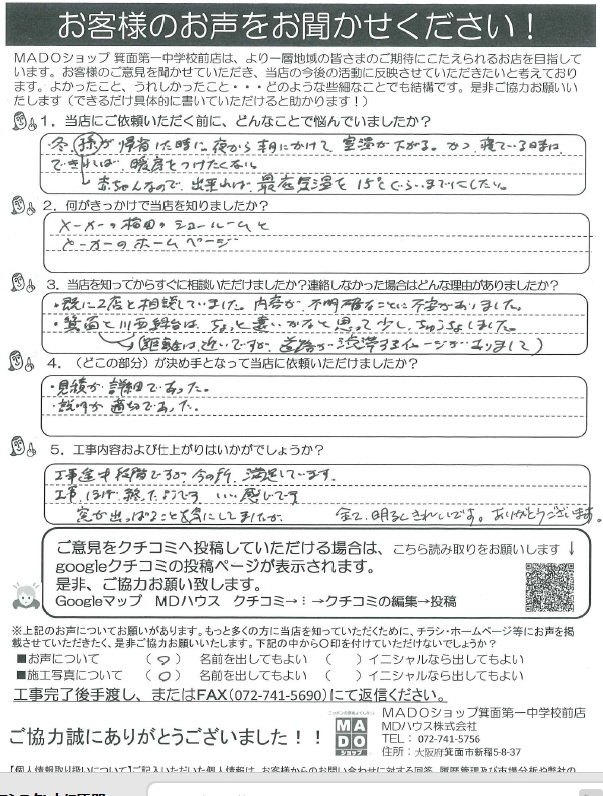 お客様のお声をお聞かせください！
MADOショップ 箕面第一中学校前店は、より一層地域の皆さまのご期待にこたえられるお店を目指して
います。お客様のご意見を聞かせていただき、当店の今後の活動に反映させていただきたいと考えており
ます。よかったこと、うれしかったこと・・・どのような些細なことでも結構です。是非ご協力お願いい
たします（できるだけ具体的に書いていただけると助かります！）
1．当店にご依頼いただく前に、どんなことで悩んでいましたか？
冬、孫が帰省した時に、夜から朝にかけて、室温が下がる。かつ寝ている時は
できれば 暖房をつけたくない。
赤ちゃんなので、出来れば、最低気温を15℃ぐらいまでにしたい。
2．何がきっかけで当店を知りましたか？
メーカーの梅田のショールームと
メーカーのホームページ
3．当店を知ってからすぐに相談いただけましたか？連絡しなかった場合はどんな理由がありましたか？
・既に2店と相談していました。内容が不明確なことに不安がありました。
・箕面と川西組合は、ちょっと遠いかなと思って少し、ちゅうちょしました。
（距離は近いですが、道路が渋滞するイメージがありまして）
4．（どこの部分）が決め手となって当店に依頼いただけましたか？
・見積が詳細であった。
・説明が適切であった。
5．工事内容および仕上がりはいかがでしょうか？
工事途中段階ですが今の所、満足しています。
工事、ほぼ終ったようです いい感じです
窓が出っぱることを気にしてましたが、 全て、明るくきれいです。ありがとうございます。
ご意見をクチコミへ投稿していただける場合は、こちら読み取りをお願いします↓
googleクチコミの投稿ページが表示されます。
是非、ご協力お願い致します。
Googleマップ MDハウス クチコミ→︙→クチコミの編集→投稿
※上記のお声についてお願いがあります。もっと多くの方に当店を知っていただくために、チラシ・ホームページ等にお声を掲
載させていただきたく、是非ご協力お願いいたします。下記の中から〇印を付けていただけないでしょうか？
■お声について （〇） 名前を出してもよい （ ）イニシャルなら出してもよい
■施工写真について （〇） 名前を出してもよい （ ）イニシャルなら出してもよい
工事完了後手渡し、またはFAX（072-741-5690）にて返信ください。
ご協力誠にありがとうございました！！
MADO
ショップ
MADOショップ箕面第一中学校前店
MDハウス株式会社
TEL： 072-741-5756
住所：大阪府箕面市新稲5-8-37
【個人情報取り扱いについて】ご記入いただいた個人情報は、お客様からのお問い合わせに対する回答、履歴管理及び市場分析や弊社の